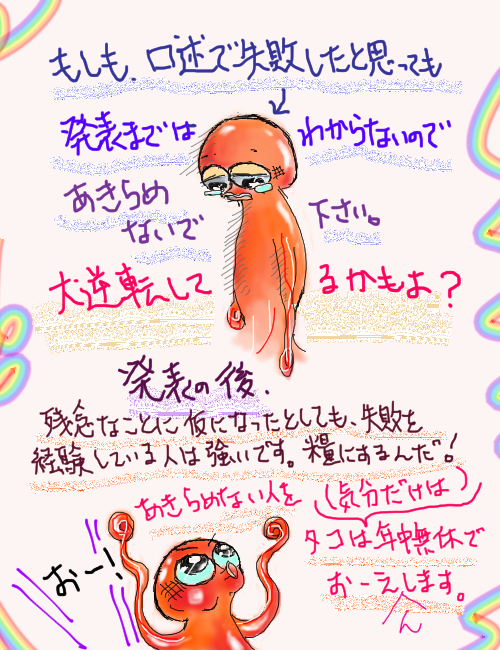 もしも、口述で失敗したと思っても
発表までは わからないので
あきらめ
ないで 下さい。
大逆転して るかもよ?
発表の後、
残念なことに仮になったとしても、失敗を
経験している人は強いです。糧にするんだ!
あきらめない人を (気分だけは)
タコは年中無休で
おーえします。
ん
おー!